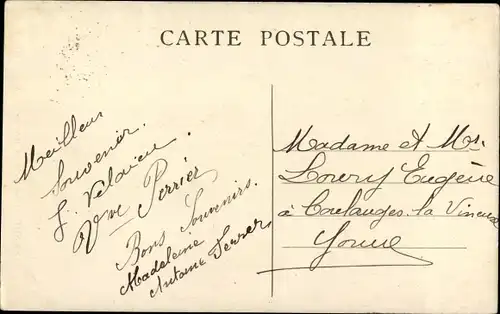 CARTE POSTALE
Meilleur
Souvenir.
Vve Perrier
Bons Souvenirs.
Madeleine
Antoine
Madame et Mr.
Eugène
à Coulanges la Vineuse
Yonne